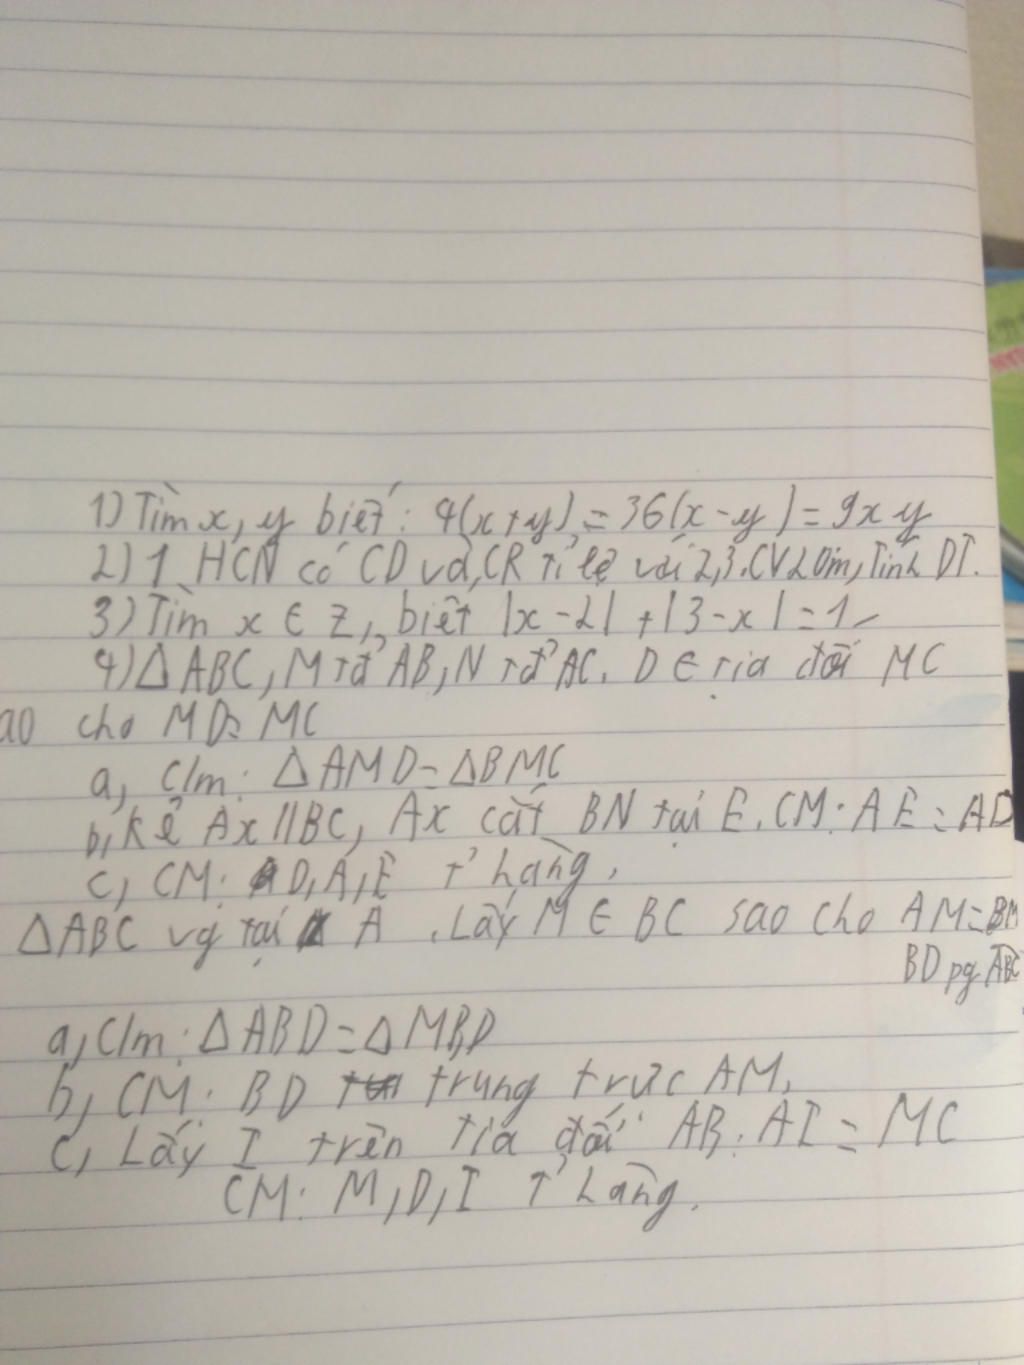 1) Tìm x, y biết: 4(x+y) = 36(x-y) = 9xy
2) 1 HCN có CD và CR tỉ lệ với 2,3. CV 20m, Tính DT.
3) Tìm x ∈ Z, biết |x-2| + |3-x| = 1
4) Δ ABC, M tđ AB, N tđ AC. D ∈ tia đối MC
ao cho MD = MC
a, C/m: Δ AMD = Δ BMC
b, Kẻ Ax // BC, Ax cắt BN tại E. CM: AE = AD
c, CM: D, A, E T' hàng.
Δ ABC vg tại A. Lấy M ∈ BC sao cho AM = BM
BD pg ABC
a, C/m: Δ ABD = Δ MBD
b, CM: BD trung trực AM.
c, Lấy I trên tia đối AB: AI = MC
CM: M, D, I T' hàng.